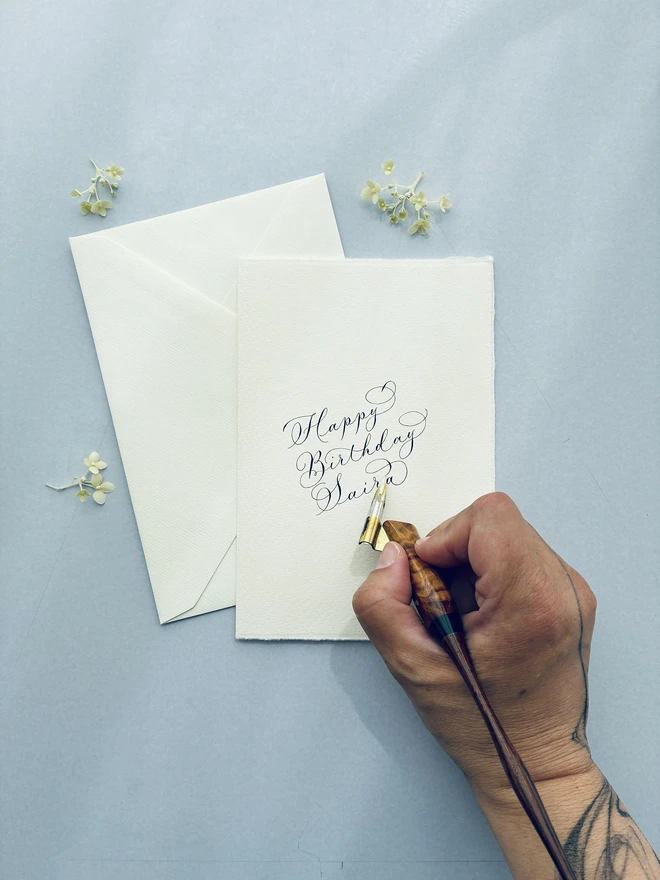 Happy
Birthday
Saira